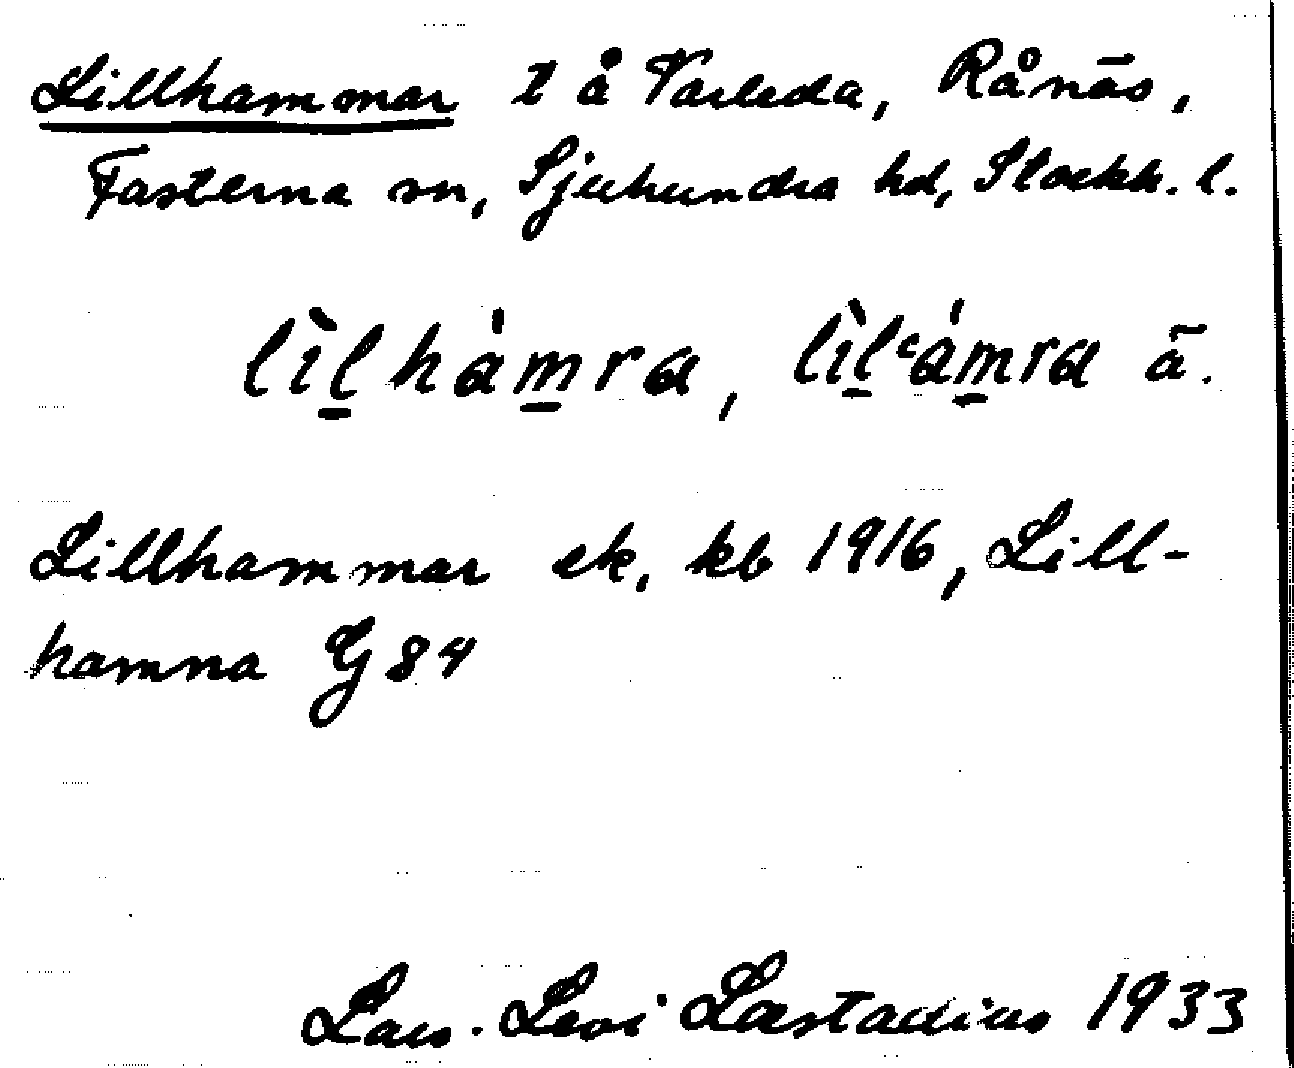 Lillhammar t å Varleda, Rånäs,
Fasterna sn, Sjuhundra hd, Stockh. l.
lìl̲hám̲ra, lìl̲ʿám̲ra ä.
Lillhammar ek. kb 1916, Lill-
hamna G 84
Lars. Levi Læstadius 1933